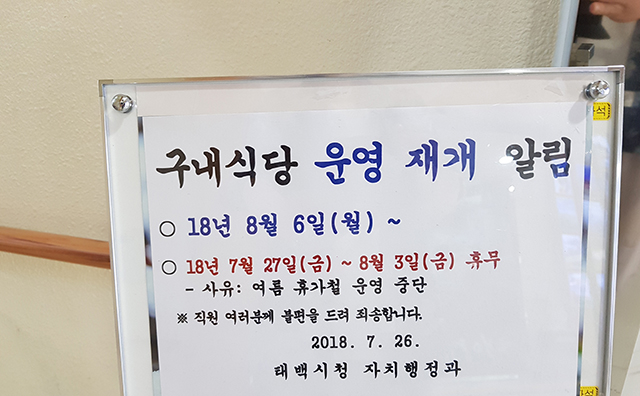 구내식당 운영 재개 알림
○ 18년 8월 6일(월) ~
○ 18년 7월 27일(금) ~ 8월 3일(금) 휴무
- 사유: 여름 휴가철 운영 중단
※ 직원 여러분께 불편을 드려 죄송합니다.
2018. 7. 26.
태백시청 자치행정과